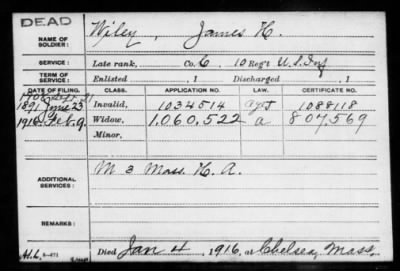 DEAD
NAME OF SOLDIER: Wiley, James H.
SERVICE: Late rank, Co. C, 10 Reg't U.S. Inf
TERM OF SERVICE: Enlisted , 1 Discharged , 1
DATE OF FILING. CLASS. APPLICATION NO. LAW. CERTIFICATE NO.
1908 Sept. 21
1891 June 23 Invalid, 1034514 1088118
1916 Feb. 9. Widow, 1,060,522 a 807,569
Minor,
ADDITIONAL SERVICES: M 3 Mass. H. A.
REMARKS:
Died Jan 4, 1916, at Chelsea, Mass.